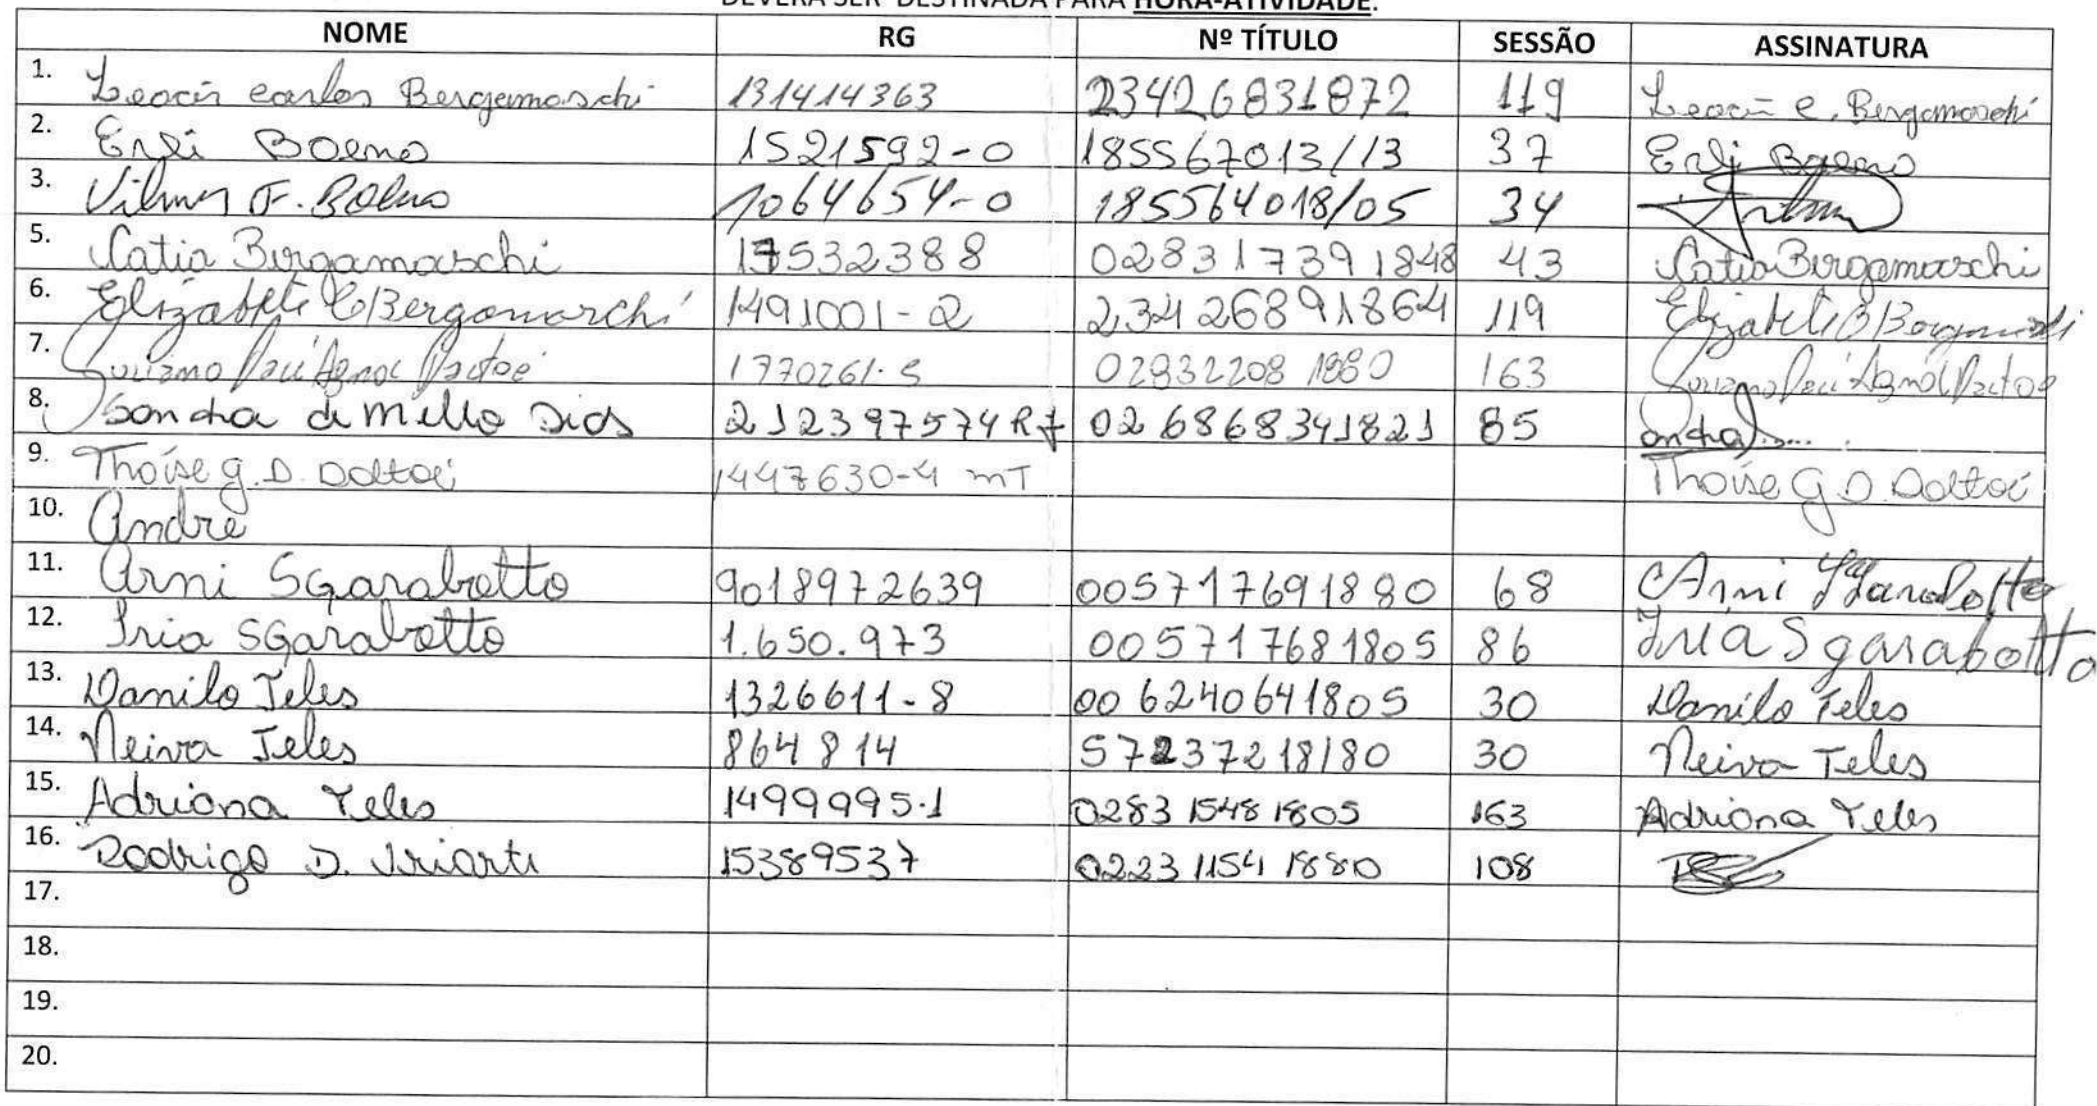 DEVERÁ SER DESTINADA PARA HORA-ATIVIDADE.
NOME RG Nº TÍTULO SESSÃO ASSINATURA
1. Leocir Carlos Bergamaschi 131414363 23426831872 119 Leocir C. Bergamaschi
2. Erli Boeno 1521592-0 185567013/13 37 Erli Boeno
3. Vilmar F. Boeno 1064654-0 185564018/05 34
5. Catia Bergamaschi 17532388 028317391848 43 Catia Bergamaschi
6. Elizabete C Bergamaschi 1491001-2 23426891864 119 Elizabete Bergamaschi
7. 1770261-5 02832208 1880 163
8. Sandra de Mello Dias 212397574 RJ 026868341821 85
9. Thoise G. D. Daltoé 1447630-4 MT Thoise G D Daltoé
10. Andre
11. Arni SGarabotto 9018972639 005717691880 68 Arni Sgarabotto
12. Iria SGarabotto 1.650.973 005717681805 86 Iria Sgarabotto
13. Danilo Teles 1326611-8 006240641805 30 Danilo Teles
14. Neiva Teles 864814 57237218180 30 Neiva Teles
15. Adriana Teles 1499995-1 0283 1548 1805 163 Adriana Teles
16. Rodrigo D. Iriarte 15389537 0223 1154 1880 108
17.
18.
19.
20.